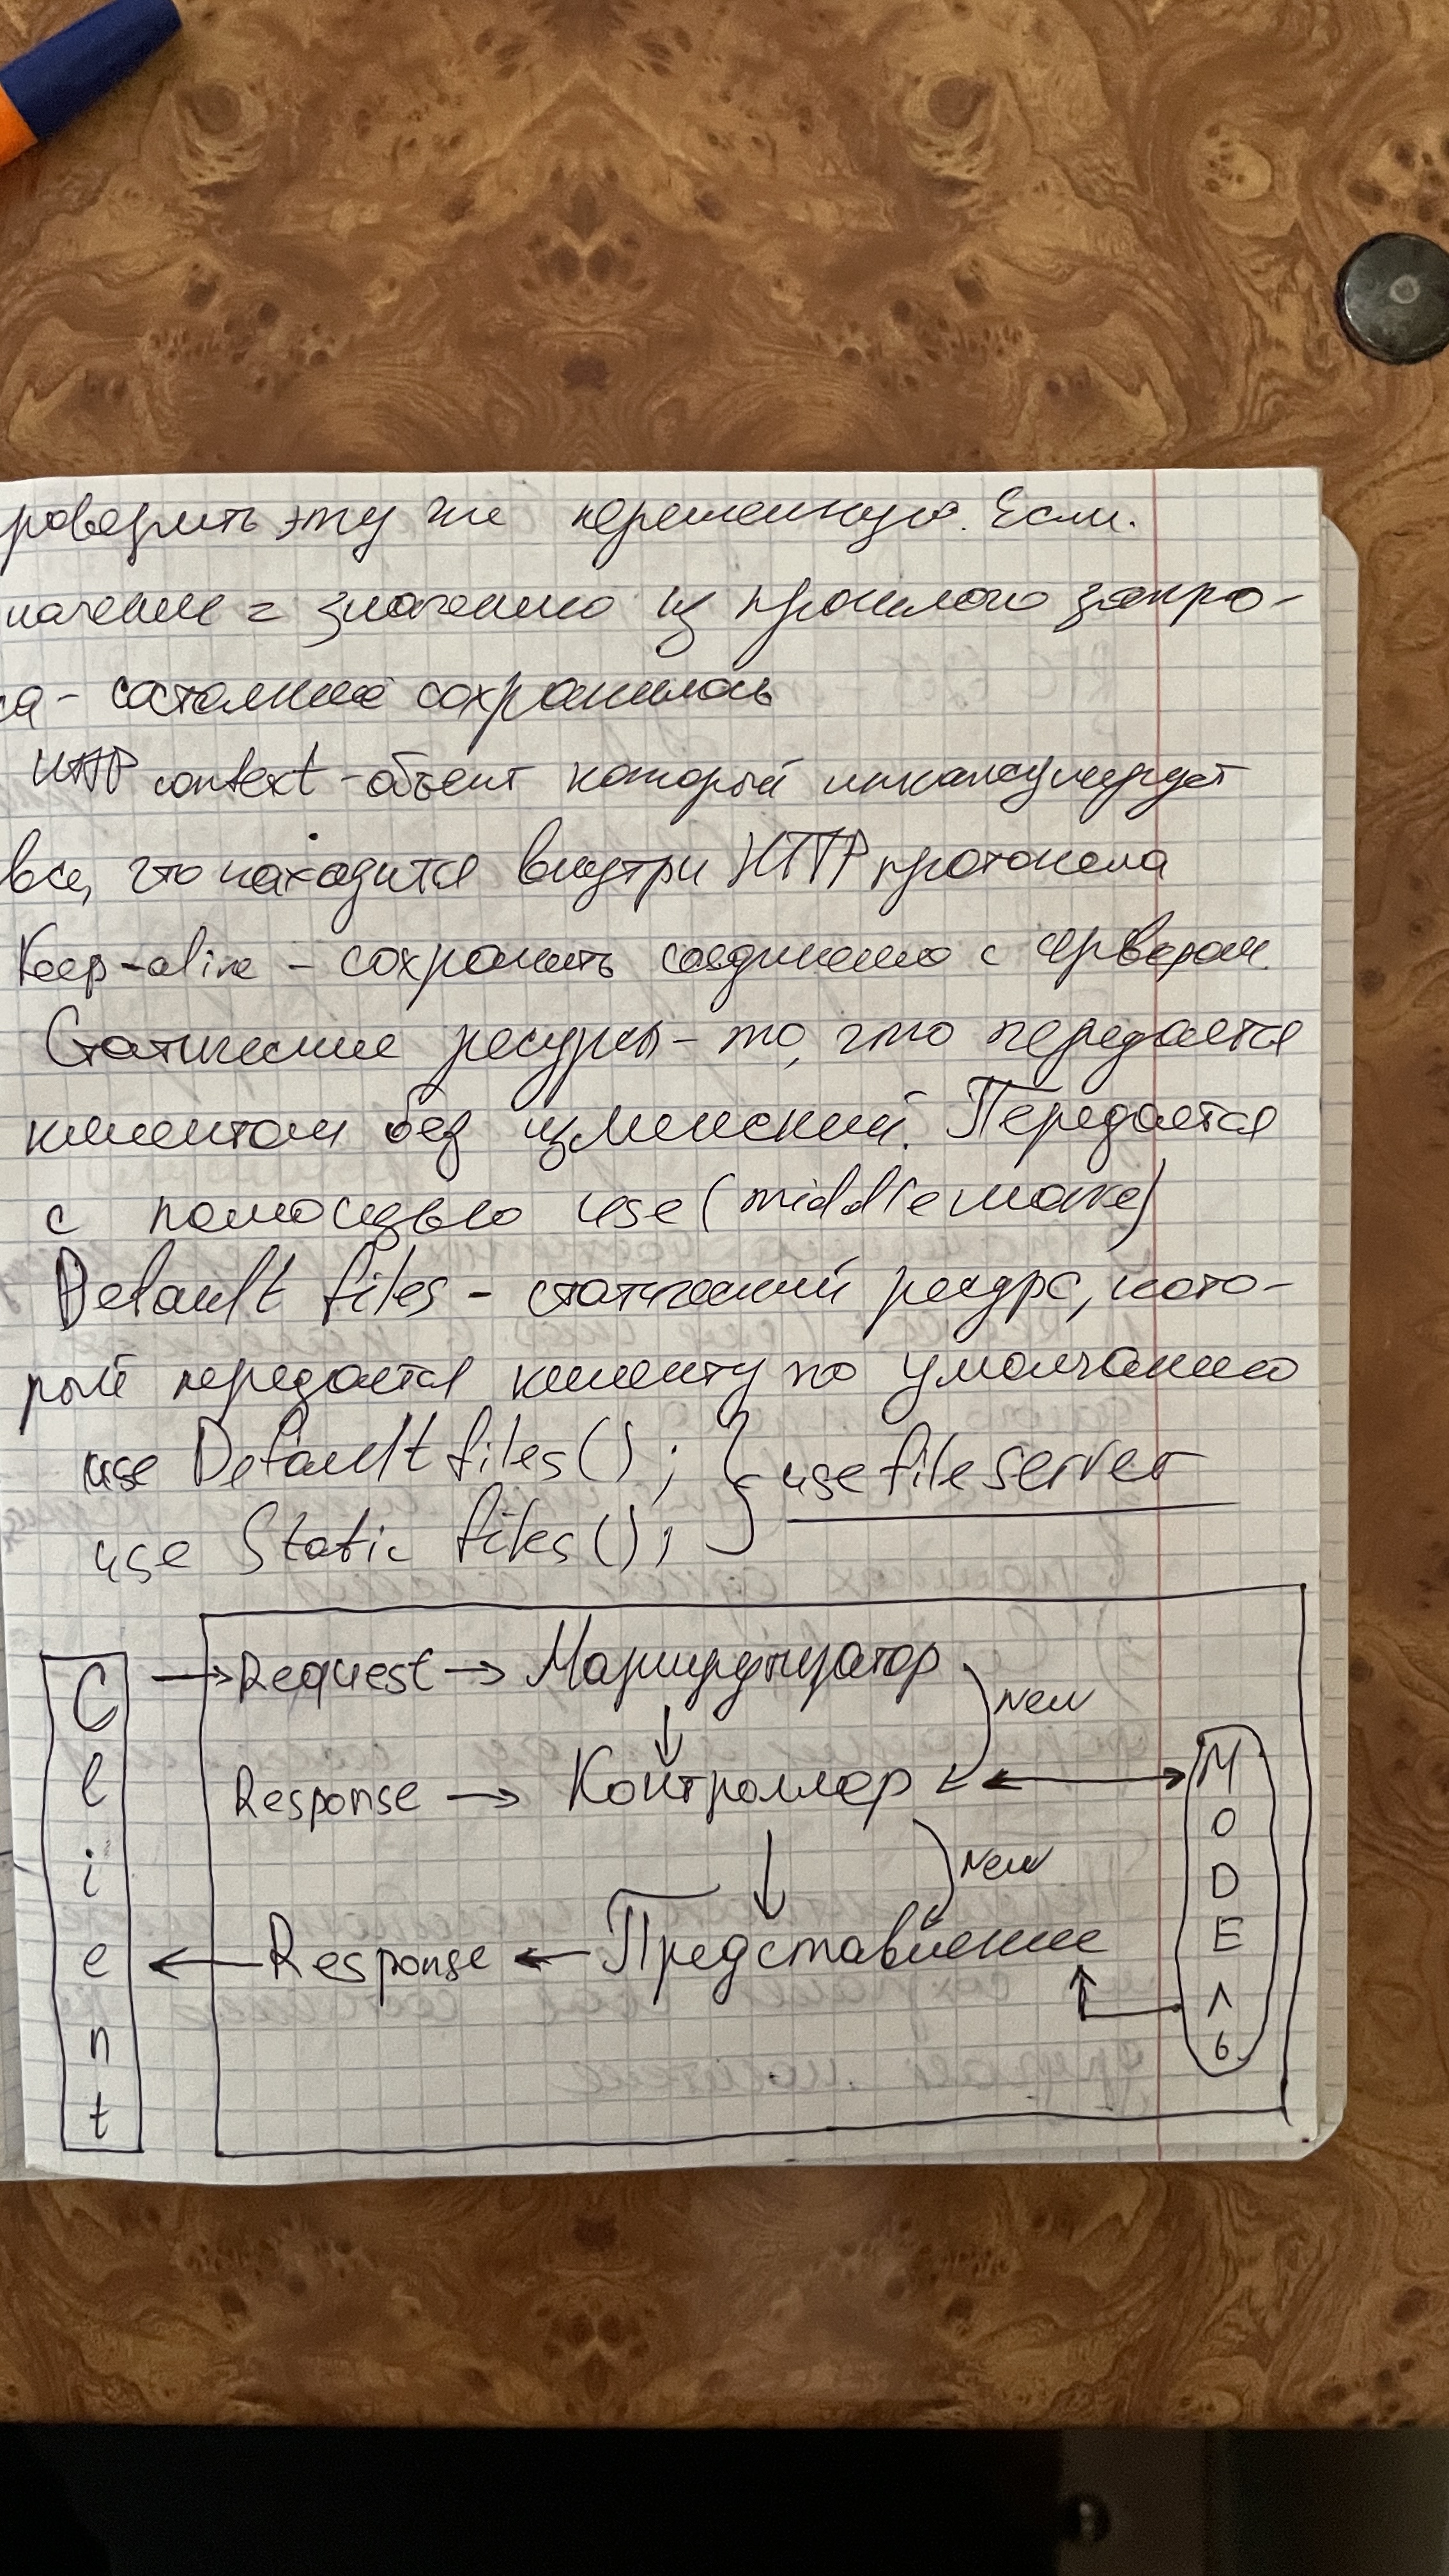 роверить эту же переменную. Если
начение = значению из прошлого запро-
са - состояние сохранилось
HTTP context - объект который инкапсулирует
все, что находится внутри HTTP протокола
Keep-alive - сохранить соединение с сервером.
Статические ресурсы - то, что передается
клиентам без изменений. Передается
с помощью use (middleware)
Default files - статический ресурс, кото-
рый передается клиенту по умолчанию
use Default files();
use Static files();
} use file server
Client
Request → Маршрутизатор
New
Response → Контроллер
New
Response ← Представление
МОДЕЛЬ